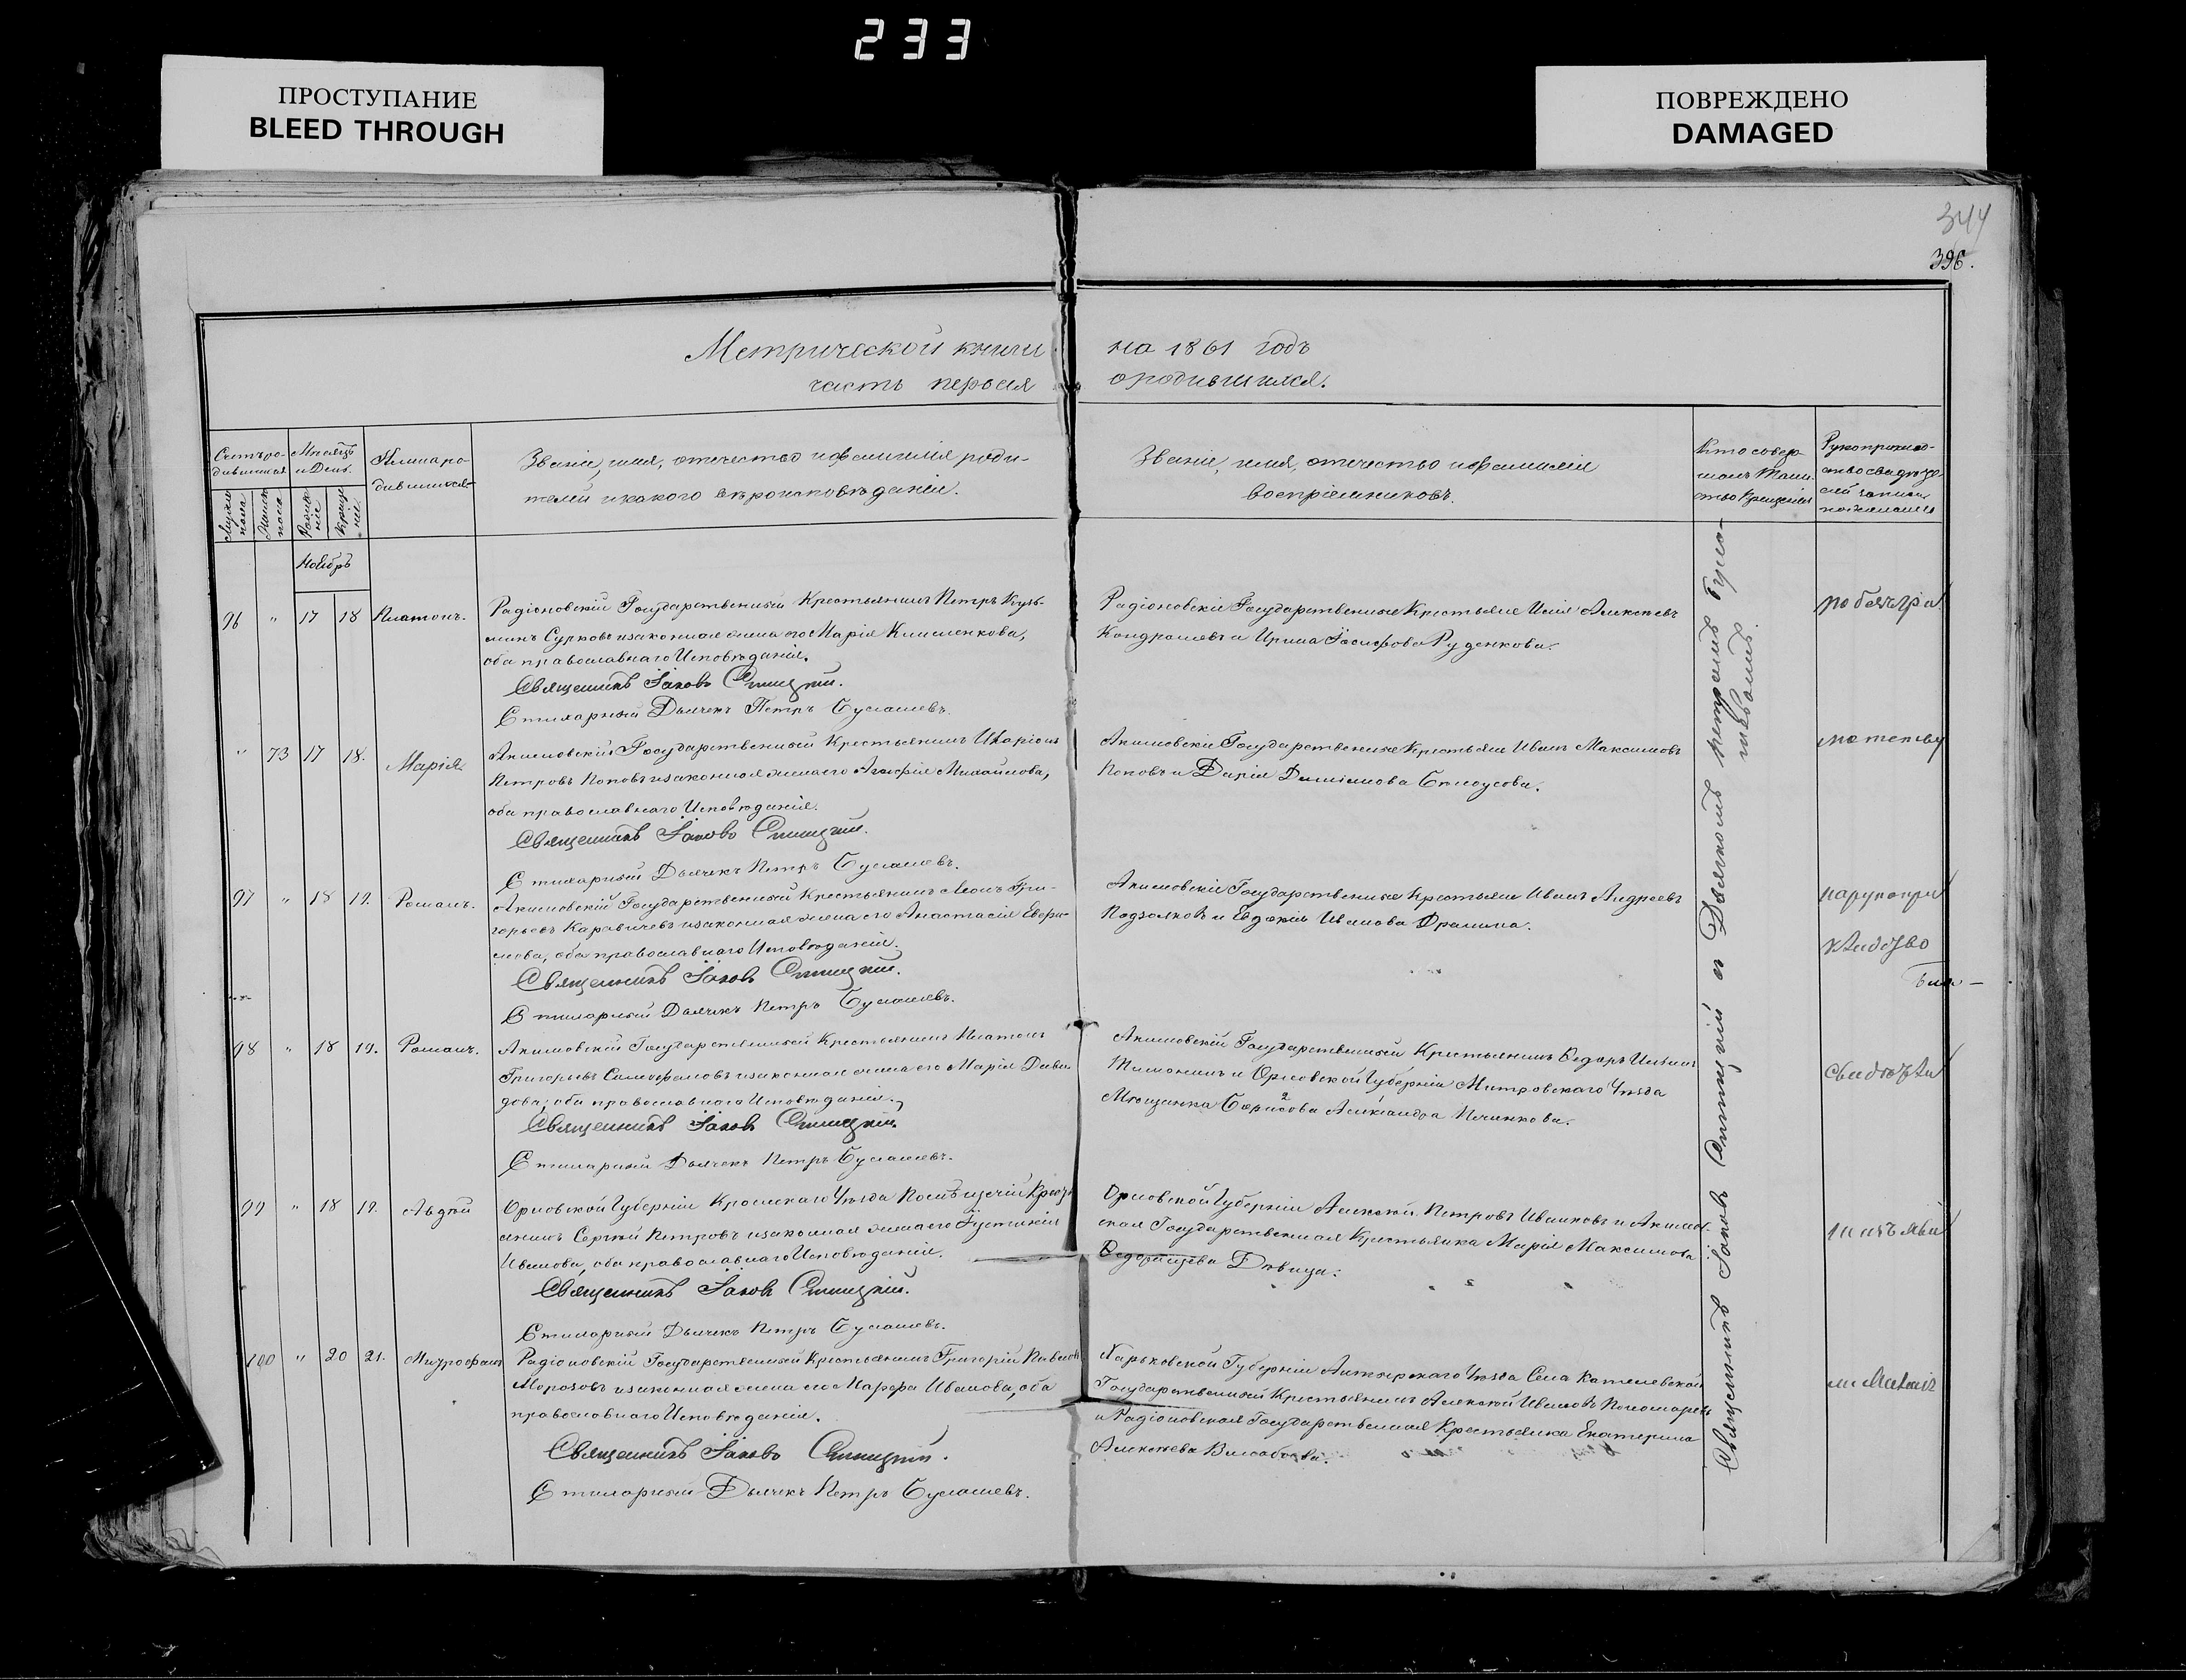 233
ПРОСТУПАНИЕ
BLEED THROUGH
ПОВРЕЖДЕНО
DAMAGED
344
396.
Метрической книги на 1861 годъ
часть первая о родившихся.
Мѣсяцъ и День.
Званіе, имя, отчество и фамилія роди-
телей и какого вѣроисповѣданія.
Званіе, имя, отчество и фамилія
воспріемниковъ.
Кто совер-
шалъ Таин-
ство Крещенія
Ноябрь
96 " 17 18 Платонъ.
Радіоновскій Государственный Крестьянинъ Петръ Кузь-
минъ Сурковъ и законная жена его Марія Клименкова,
оба православнаго Исповѣданія.
Священникъ Іаковъ
Стихарный Дьячекъ Петръ
Радіоновскіе Государственные Крестьяне Илія Алексѣевъ
Кондрашевъ и Ирина Іосифова Руденкова.
" 73 17 18. Марія.
Акимовскій Государственный Крестьянинъ Иларіонъ
Петровъ Поповъ и законная жена его Агафія Михайлова,
оба православнаго Исповѣданія.
Священникъ Іаковъ
Стихарный Дьячекъ Петръ
Акимовскіе Государственные Крестьяне Иванъ Максимовъ
Поповъ и Дарія Даміанова Бѣлоусова.
97 " 18 19. Романъ.
Акимовскій Государственный Крестьянинъ Леонъ Гри-
горьевъ Каравичевъ и законная жена его Анастасія
оба православнаго Исповѣданія.
Священникъ Іаковъ
Стихарный Дьячекъ Петръ
Акимовскіе Государственные Крестьяне Иванъ Андреевъ
Подзолковъ и Евдокія Иванова
98 " 18 19. Романъ.
Акимовскій Государственный Крестьянинъ Платонъ
Григорьевъ и законная жена его Марія Дави-
дова, оба православнаго Исповѣданія.
Священникъ Іаковъ
Стихарный Дьячекъ Петръ
Акимовскій Государственный Крестьянинъ Ѳедоръ Ильинъ
Тимонинъ и Орловской Губерніи Митровскаго Уѣзда
Мѣщанка Борисова Александра
99 " 18 19. Авдѣй
Орловской Губерніи Кромскаго Уѣзда Помѣщичій Кресть-
янинъ Сергѣй Петровъ и законная жена его Іустинія
Иванова, оба православнаго Исповѣданія.
Священникъ Іаковъ
Стихарный Дьячекъ Петръ
Орловской Губерніи Алексѣй Петровъ Иванковъ и Акимов-
ская Государственная Крестьянка Марія Максимова
Дѣвица.
100 " 20 21. Митрофанъ
Радіоновскій Государственный Крестьянинъ Григорій Павловъ
Морозовъ и законная жена его Марфа Иванова, оба
православнаго Исповѣданія.
Священникъ Іаковъ
Стихарный Дьячекъ Петръ
Харьковской Губерніи Ахтырскаго Уѣзда Села Котелевской
Государственный Крестьянинъ Алексѣй Ивановъ Пономаревъ
и Радіоновская Государственная Крестьянка Екатерина
Алексѣева
Священникъ Іаковъ
съ Дьячкомъ Петромъ